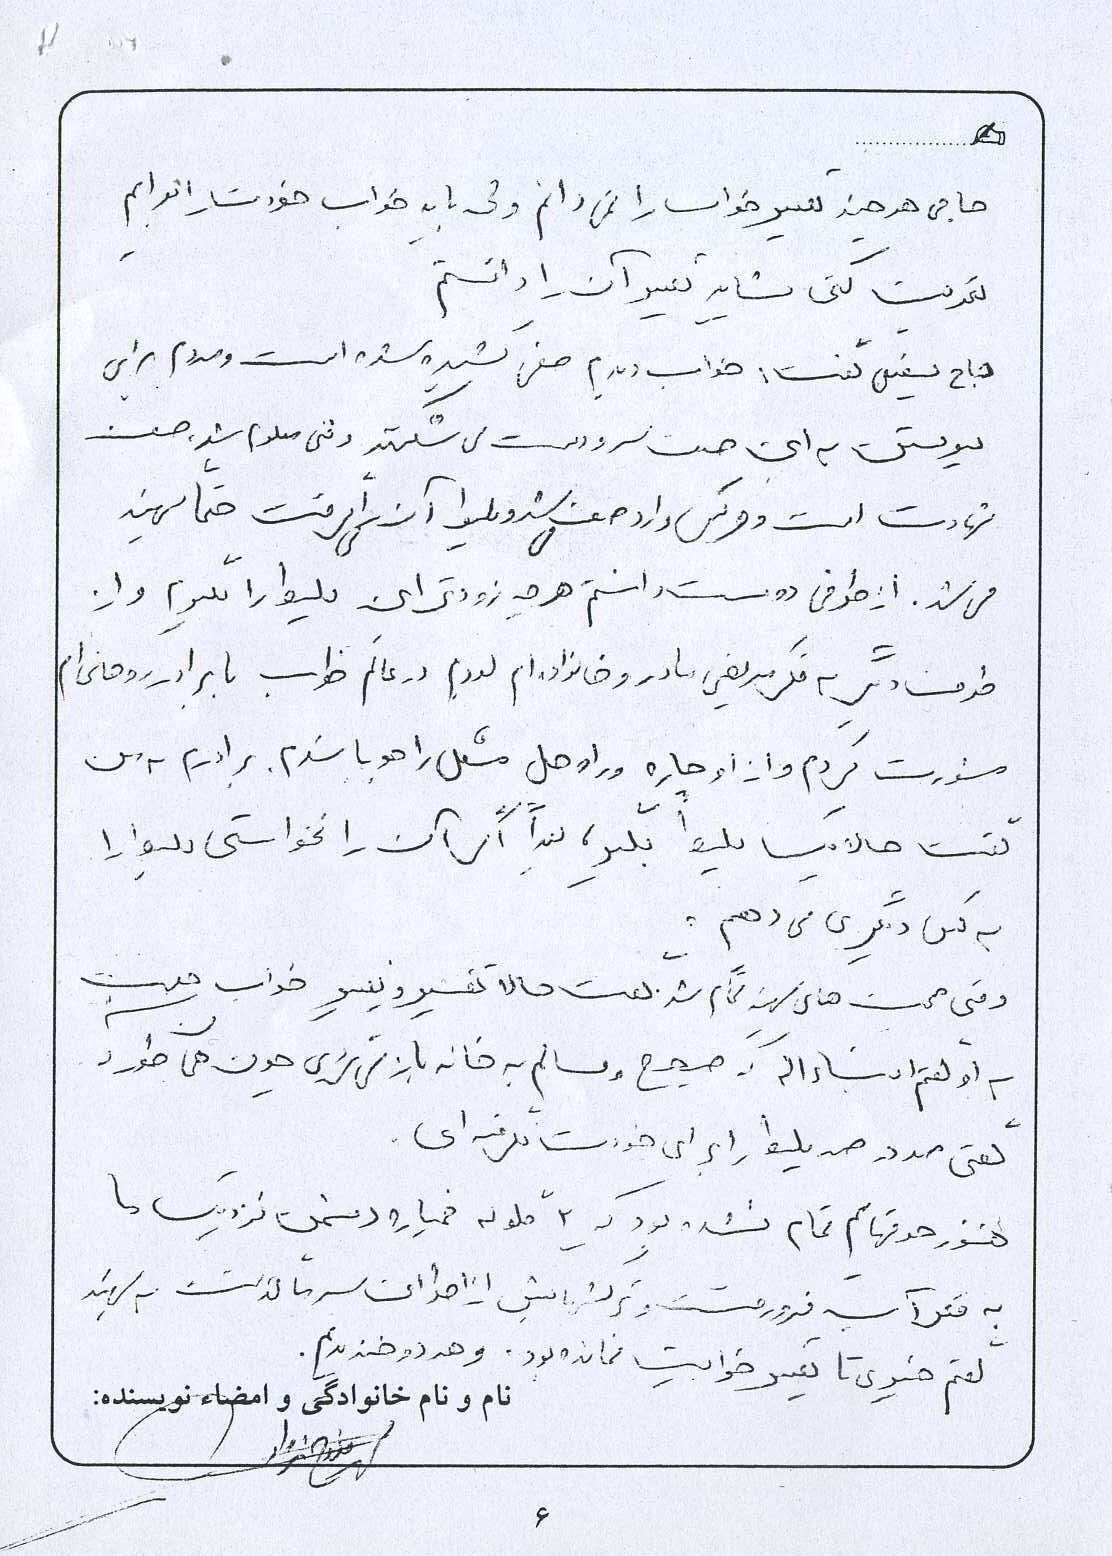 حاجی هر چند تعبیر خواب را نمی دانم ولی باید خواب خودت را برایم
تعریف کنی شاید تعبیر آن را دانستم
حاج گفت: خواب دیدم صفی کشیده شده است و مردم برای
پیوستن به این صف سر و دست می شکنند وقتی معلوم شد، صف
شهادت است و هر کس وارد صف می شد و بلیط آن را می گرفت حتماً شهید
می شد. از طرفی دوست داشتم هر چه زودتر این بلیط را بگیرم و از
طرف دیگر به فکر مریضی مادر و خانواده ام بودم در عالم خواب با برادر روحانی ام
مشورت کردم و از او چاره و راه حل مشکل را جویا شدم. برادرم به من
گفت حالا بیا بلیط را بگیر، بعداً اگر آن را نخواستی بلیط را
به کس دیگری می دهم.
وقتی صحبت های شهید تمام شد. گفت حالا تفسیر و تعبیر خواب چیست
به او گفتم انشاءالله که صحیح و سالم به خانه باز می گردی چون همین طور که
گفتی صد در صد بلیط را برای خودت نگرفته ای.
هنوز حرفهایم تمام نشده بود که ۲ گلوله خمپاره دشمن نزدیک ما
به فرود آمد و ترکشهایش از اطراف سر ما گذشت به شهید
گفتم چیزی تا تعبیر خوابت نمانده بود. و هر دو خندیدیم.
نام و نام خانوادگی و امضاء نویسنده:
۶